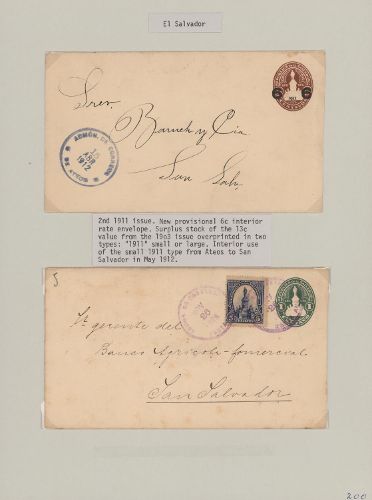 El Salvador
Sres.
Baruch y Cia
San Salv.
ADMON. DE CORREOS
1912
2nd 1911 issue. New provisional 6c interior
rate envelope. Surplus stock of the 13c
value from the 1903 issue overprinted in two
types: "1911" small or large. Interior use
of the small 1911 type from Ateos to San
Salvador in May 1912.
5
Sr gerente del
Banco Agricola-Comercial
San Salvador
200